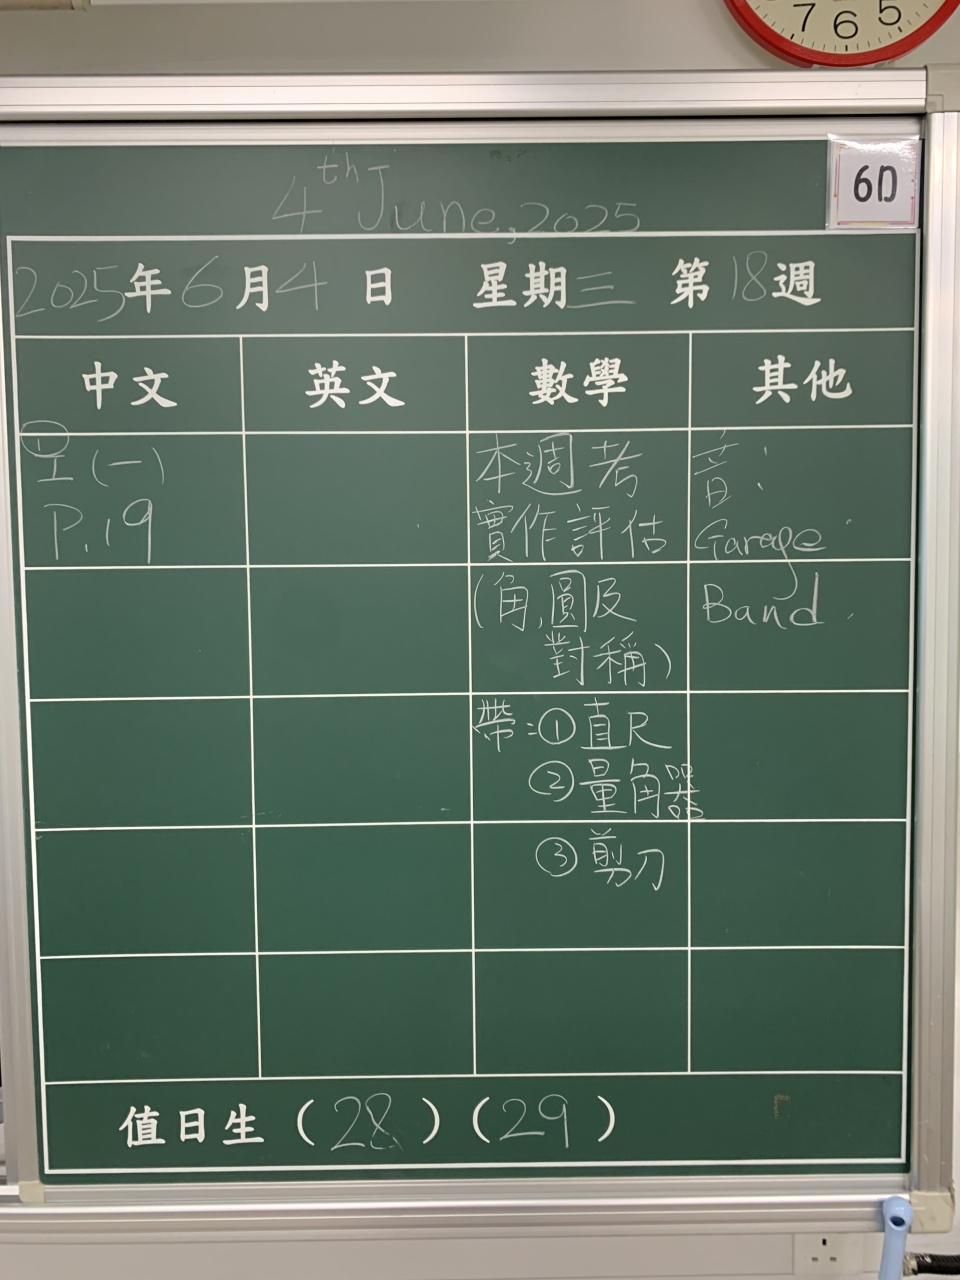 7 6 5
6D
4th June, 2025
2025年6月4日 星期三 第18週
中文 英文 數學 其他
①
工(一)
P.19
本週考
實作評估
(角,圓及
對稱)
帶:①直尺
②量角器
③剪刀
音:
Garage
Band
值日生(28)(29)